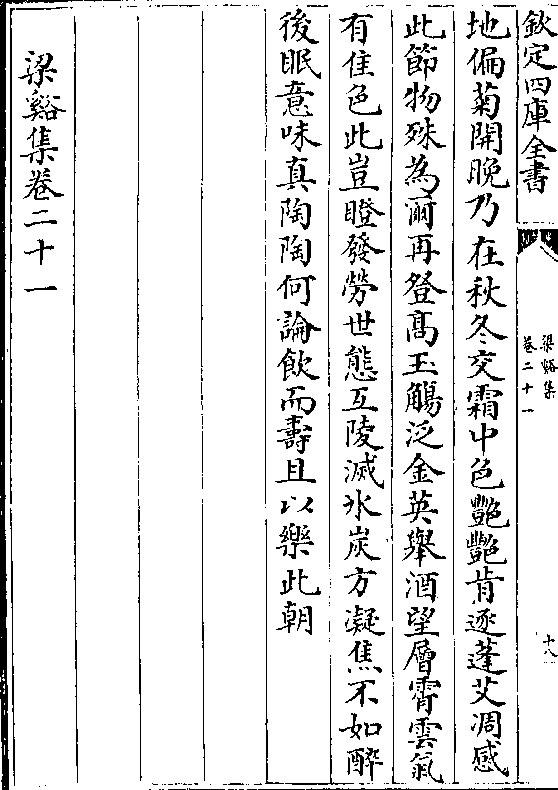 欽定四庫全書
梁谿集
卷二十一
十八
地偏菊開晚乃在秋冬交霜中色豔豔肯逐蓬艾凋感
此節物殊為爾再登髙玉觴泛金英舉酒望層霄雲氣
有佳色此豈瞪發勞世態互陵滅氷炭方凝焦不如醉
後眠意味真陶陶何論飲而壽且以樂此朝
梁谿集卷二十一